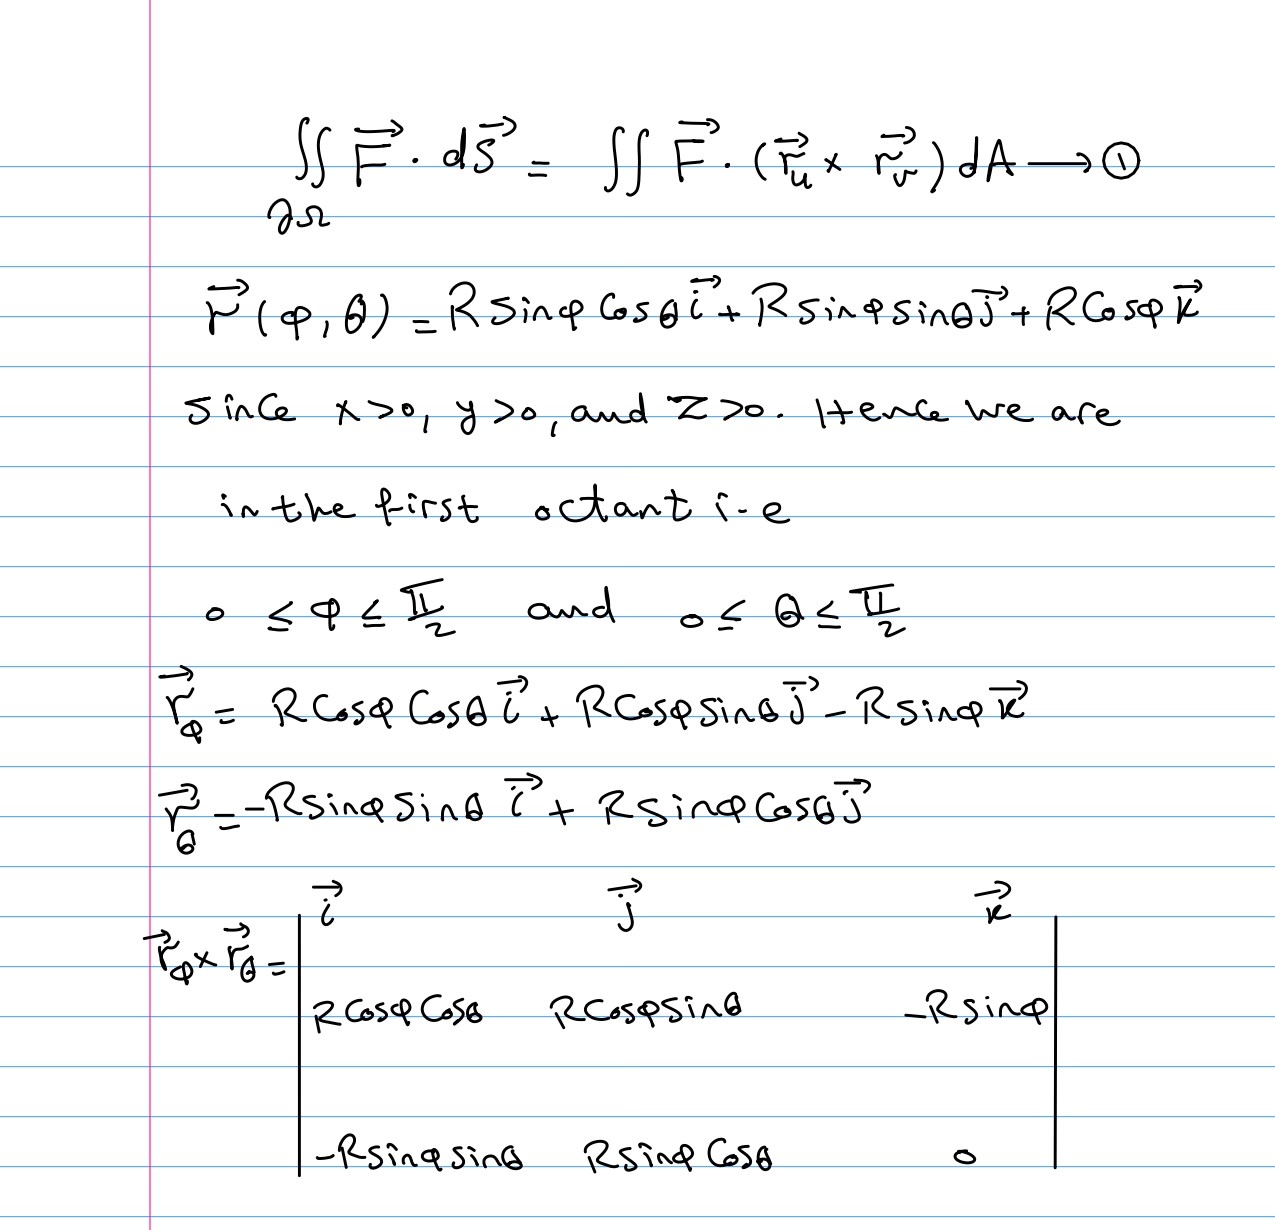 ∬_{∂Ω} F⃗ · dS⃗ = ∬ F⃗ · (r⃗_u × r⃗_v) dA ⟶ ①
r⃗(φ, θ) = R sinφ Cosθ i⃗ + R sinφ sinθ j⃗ + R Cosφ k⃗
since x>0, y>0, and Z>0. Hence we are
in the first octant i-e
0 ≤ φ ≤ π/2 and 0 ≤ θ ≤ π/2
r⃗_φ = R Cosφ Cosθ i⃗ + R Cosφ sinθ j⃗ - R sinφ k⃗
r⃗_θ = -R sinφ sinθ i⃗ + R sinφ Cosθ j⃗
i⃗ j⃗ k⃗
r⃗_φ × r⃗_θ =
R Cosφ Cosθ R Cosφ sinθ -R sinφ
-R sinφ sinθ R sinφ Cosθ 0